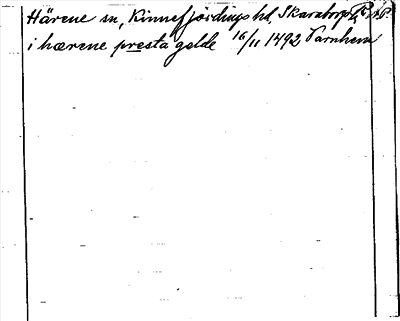 Härene sn, Kinnefjärdings hd, Skaraborgs
i hærene presta gelde 16/11 1492 Varnhem